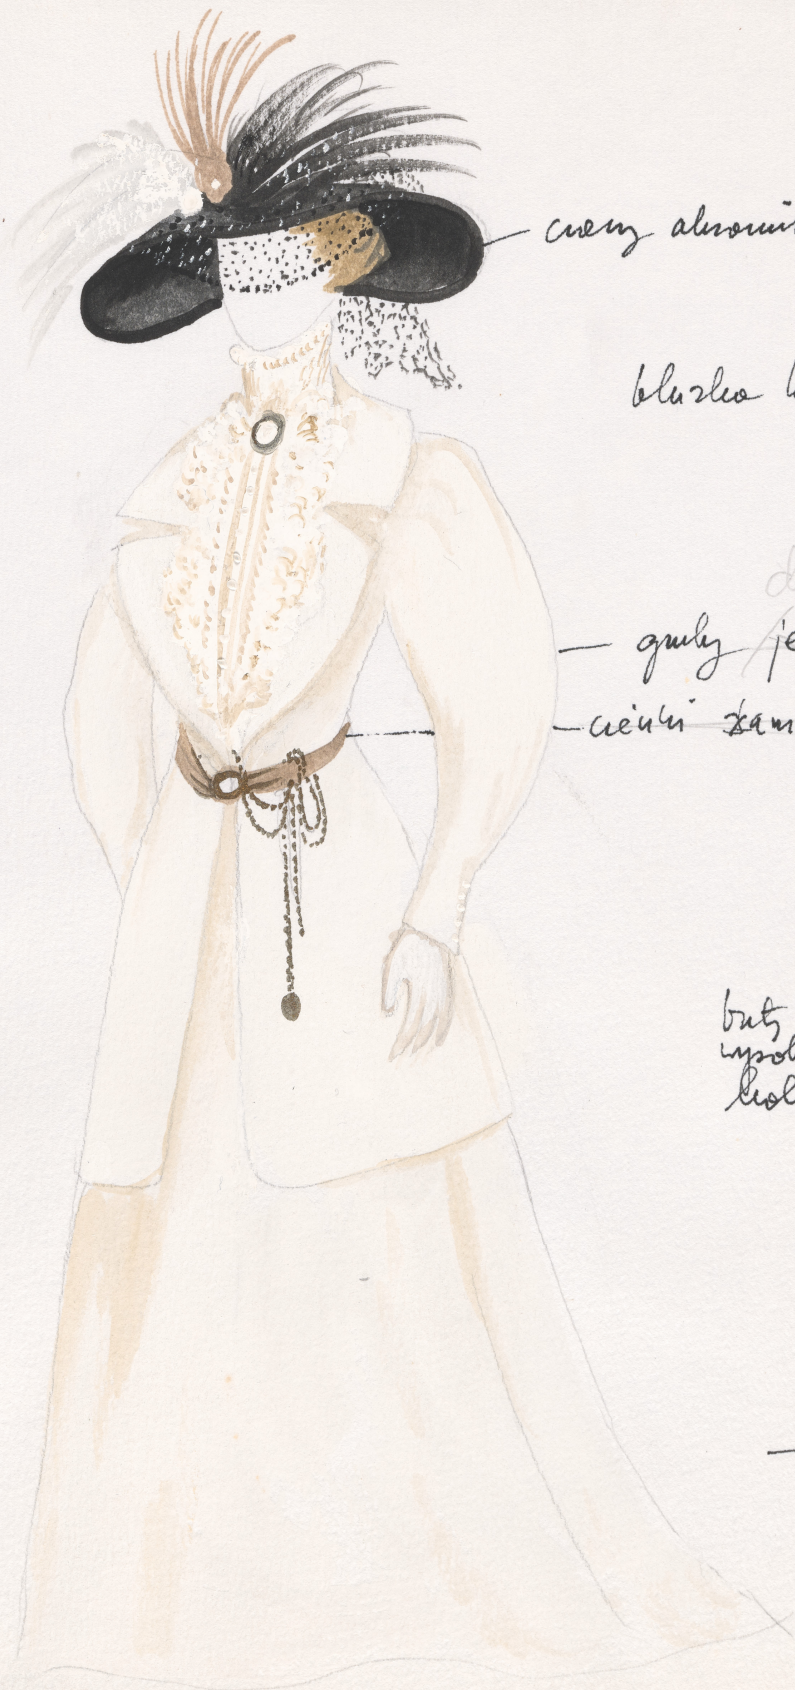 czarny aksamit
bluzka
gruby je
cienki zam
buty
wysok
kol